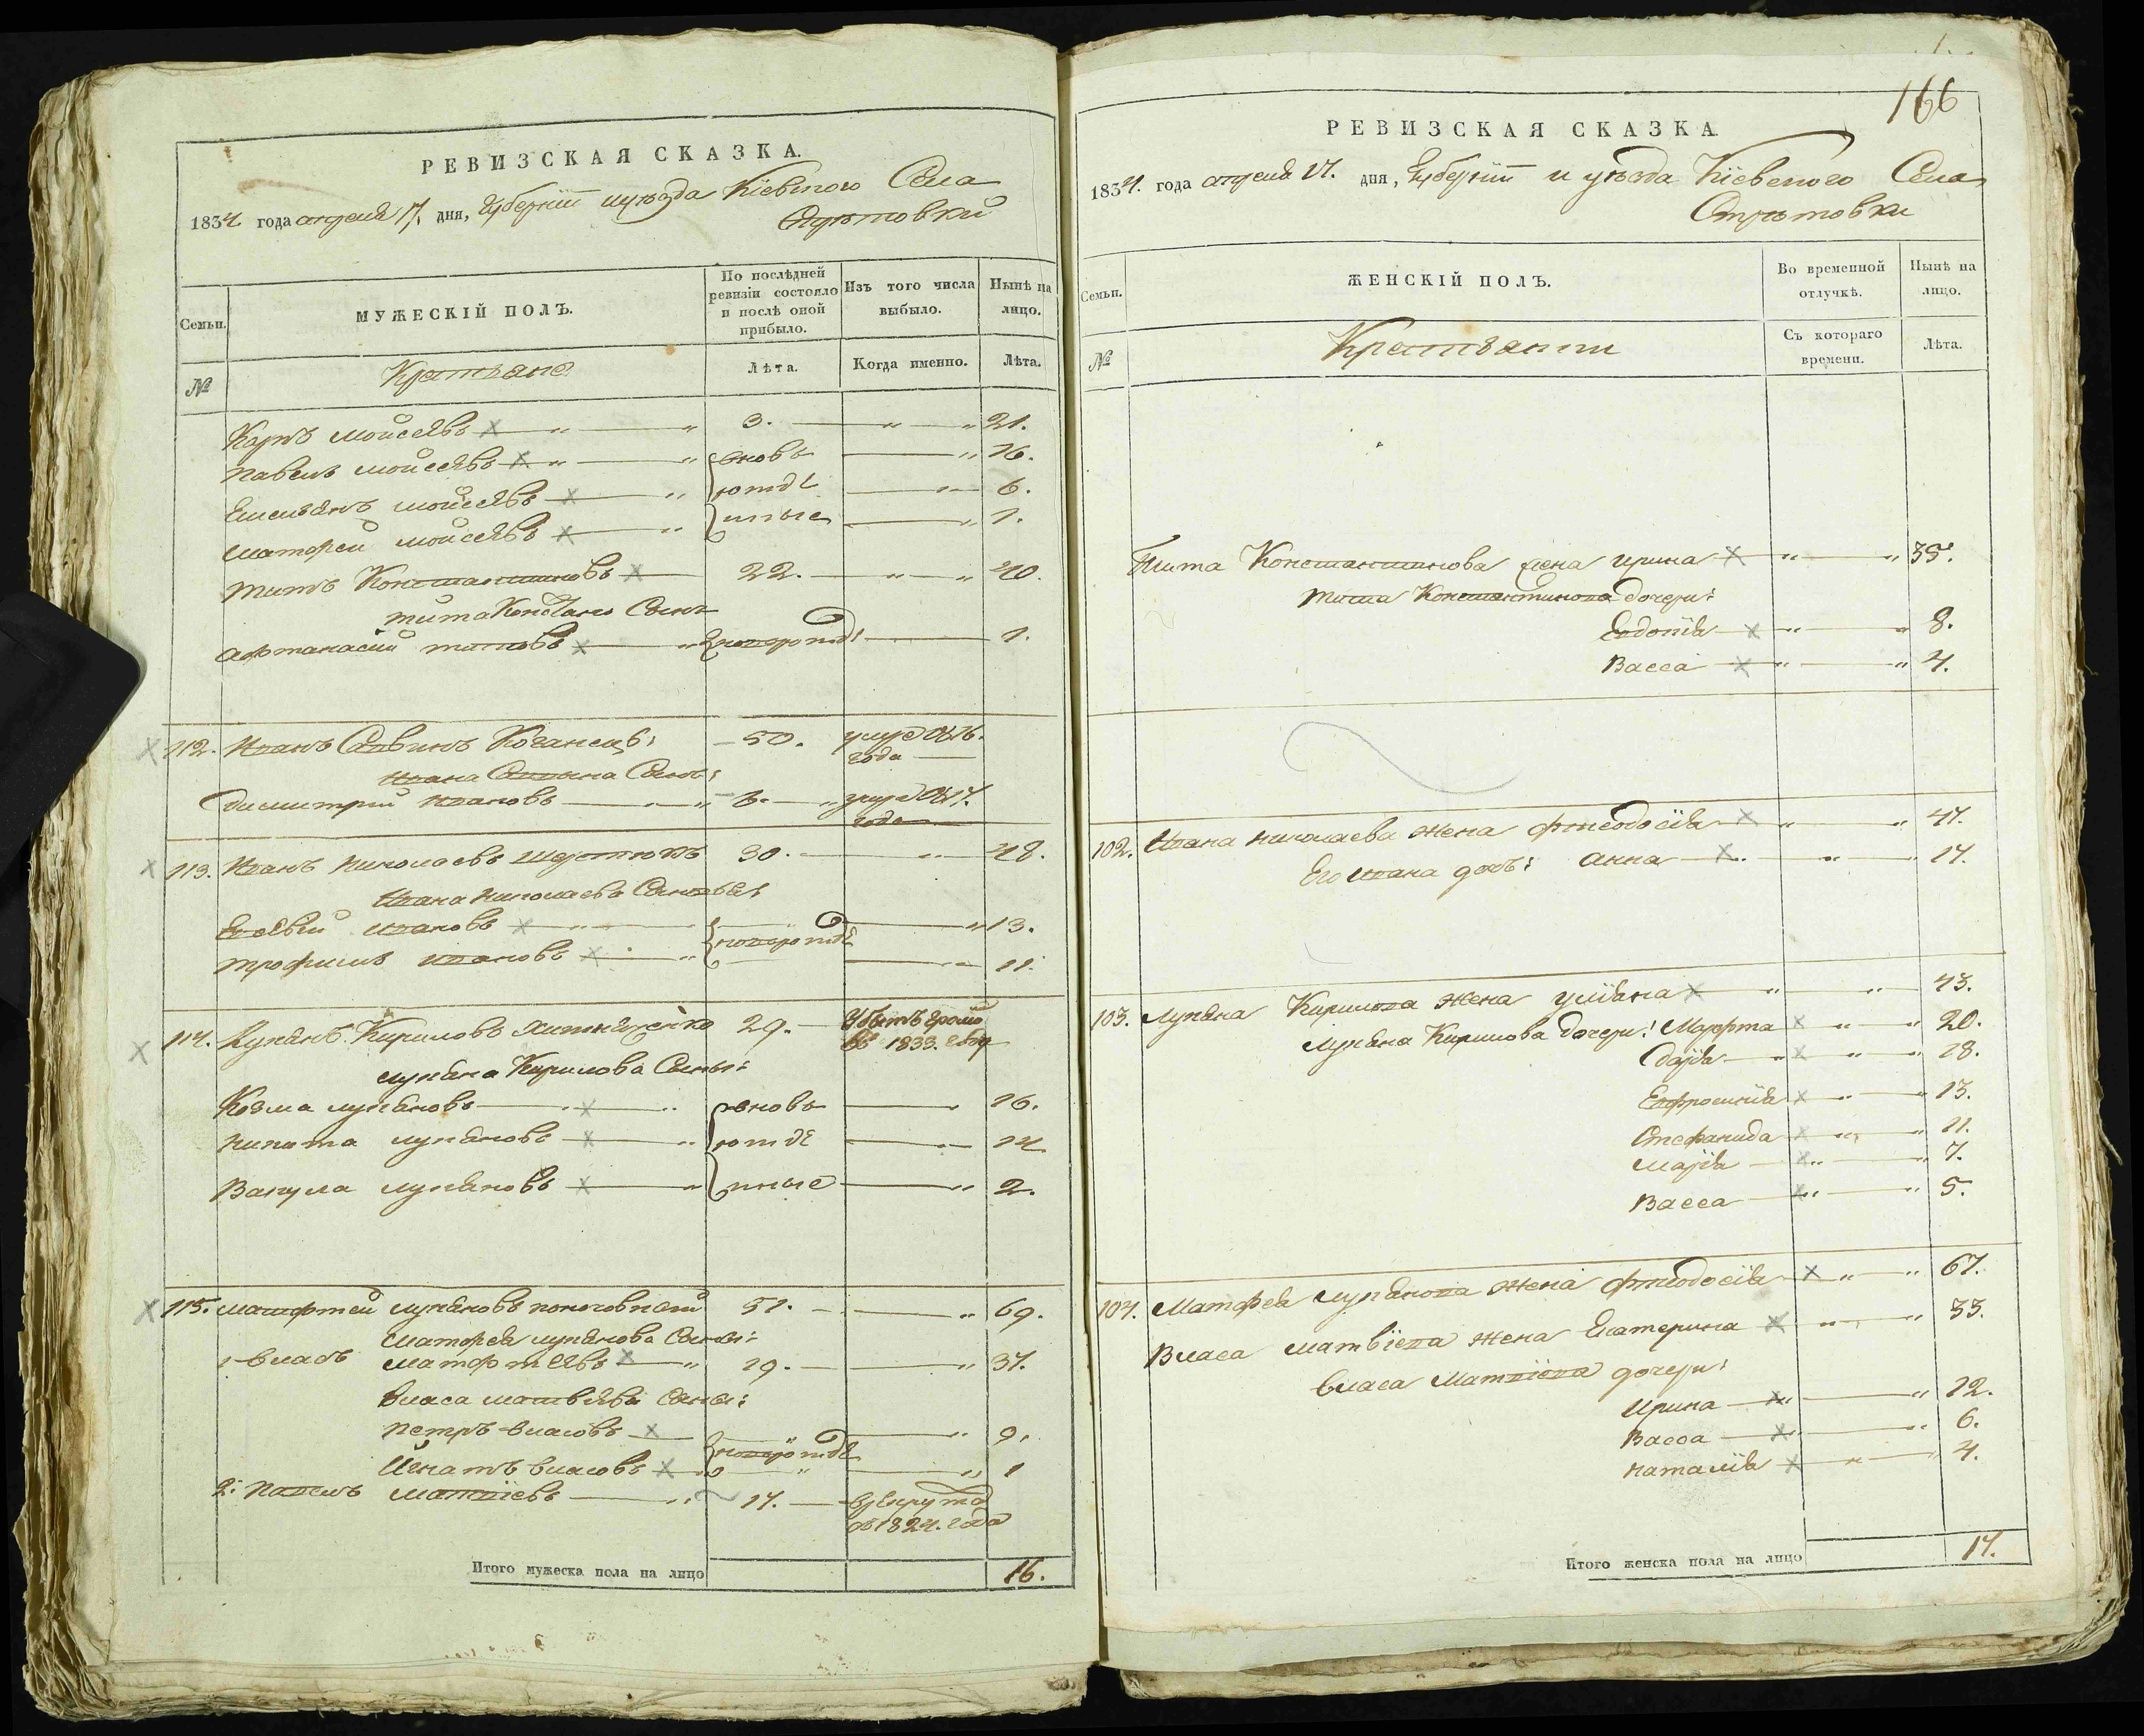 РЕВИЗСКАЯ СКАЗКА.
1834 года апреля 17. дня, Губернiи и уѣзда Кiевского Села
Стрѣтовки
Семьи.
МУЖЕСКІЙ ПОЛЪ.
По послѣдней ревизіи состояло и послѣ оной прибыло.
Изъ того числа выбыло.
Нынѣ на лицо.
№
Крестьяне
Лѣта.
Когда именно.
Лѣта.
Карпъ Мойсеѣвъ 3. 21.
Павелъ Мойсеѣвъ вновь 16.
Емельянъ Мойсеѣвъ рожде 6.
Матфей Мойсеѣвъ нные 1.
Титъ Константиновъ 22. 40.
Тита Конста Сынъ
Афтанасий Титовъ новорожд 1.
112. Иванъ Савинъ 50. умре 1826.
года
Ивана Савина Сынъ:
Димитрий Ивановъ 6. умре
года
113. Иванъ Николаевъ 30. 48.
Ивана Николаева Сыновья:
Евсѣвий Ивановъ 13.
новорожде
Трофимъ Ивановъ 11.
114. Лукьянъ Кириловъ 29.
въ 1833. году
Лукьяна Кирилова Сыны:
Козма Лукьяновъ вновь 16.
Никита Лукьяновъ рожде 14.
Вакула Лукьяновъ нные 2.
115. Матфтей Лукьяновъ 51. 69.
Матфея Лукьянова Сыны:
1. Власъ Матфтеѣвъ 19. 37.
Власа Матвѣева Сыны:
Петръ Власовъ 9.
новорожде
Игнатъ Власовъ 1
2. Павелъ Матвiевъ 17. въ рекруты
съ 1824. года
Итого мужеска пола на лицо 16.
166
РЕВИЗСКАЯ СКАЗКА.
1834. года апреля 17. дня, Губернiи и уѣзда Кiевского Села
Стрѣтовки
Семьи.
ЖЕНСКІЙ ПОЛЪ.
Во временной отлучкѣ.
Нынѣ на лицо.
№
Крестьянки
Съ котораго времени.
Лѣта.
Тита Константинова жена Ирина 35.
Тита Константинова дочери:
Евдокiя 8.
Васса 4.
102. Ивана Николаева жена Фтеодосiя 47.
Его Ивана дочь: Анна 17.
103. Лукьяна Кирилова жена Улiяна 43.
Лукьяна Кирилова дочери: Марфта 20.
18.
Ефросинiя 13.
Стефанида 11.
Марiя 7.
Васса 5.
104. Матфея Лукьянова жена Фтеодосiя 67.
Власа Матвiева жена Екатерина 33.
Власа Матвiева дочери:
Ирина 12.
Васса 6.
Наталiя 4.
Итого женска пола на лицо 17.